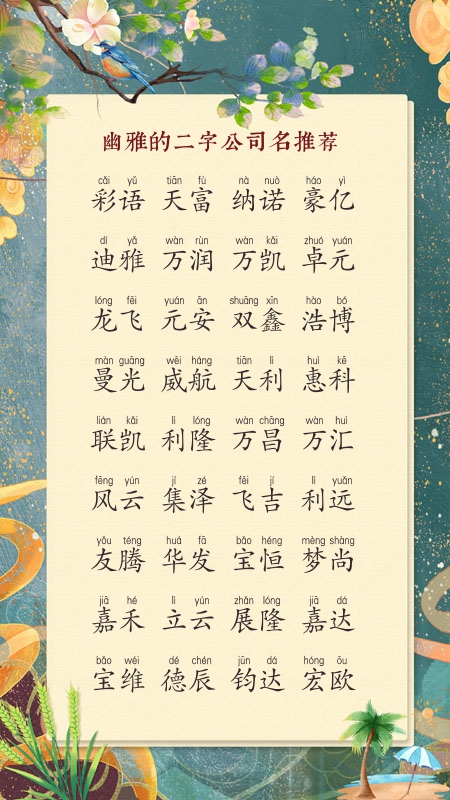 幽雅的二字公司名推荐
cǎi yǔ tiān fù nà nuò háo yì
彩语 天富 纳诺 豪亿
dí yǎ wàn rùn wàn kǎi zhuó yuán
迪雅 万润 万凯 卓元
lóng fēi yuán ān shuāng xīn hào bó
龙飞 元安 双鑫 浩博
màn guāng wēi háng tiān lì huì kē
曼光 威航 天利 惠科
lián kǎi lì lóng wàn chāng wàn huì
联凯 利隆 万昌 万汇
fēng yún jí zé fēi jí lì yuǎn
风云 集泽 飞吉 利远
yǒu téng huá fā bǎo héng mèng shàng
友腾 华发 宝恒 梦尚
jiā hé lì yún zhǎn lóng jiā dá
嘉禾 立云 展隆 嘉达
bǎo wéi dé chén jūn dá hóng ōu
宝维 德辰 钧达 宏欧